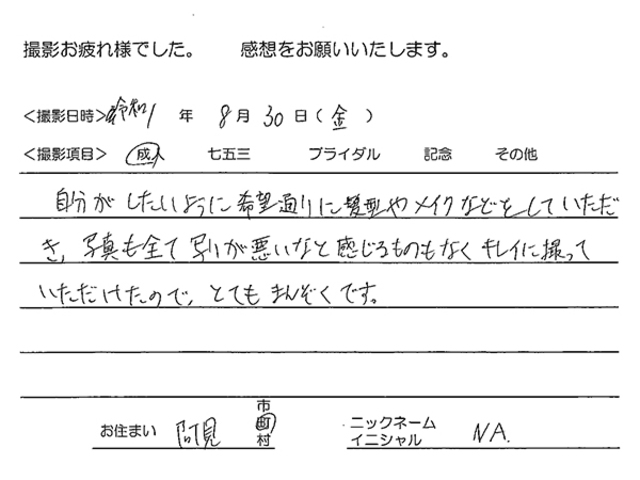 撮影お疲れ様でした。　感想をお願いいたします。
＜撮影日時＞令和1 年 8月 30日(金)
＜撮影項目＞ 成人 七五三 ブライダル 記念 その他
自分がしたいように希望通りに髪型やメイクなどをしていただ
き、写真も全て写りが悪いなと感じるものもなくキレイに撮って
いただけたので、とてもまんぞくです。
お住まい 阿見 市町村 ニックネーム イニシャル N.A.